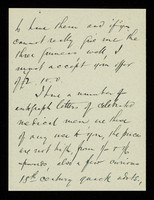 to have them and if you
cannot really give me the
three guineas well, I
must accept your offer
of £2. 10. 0
I have a number of
autograph letters of celebrated
medical men are these
of any use to you, the prices
are not high from 5/- to 7/-
also a few curious
18th century quack advts,